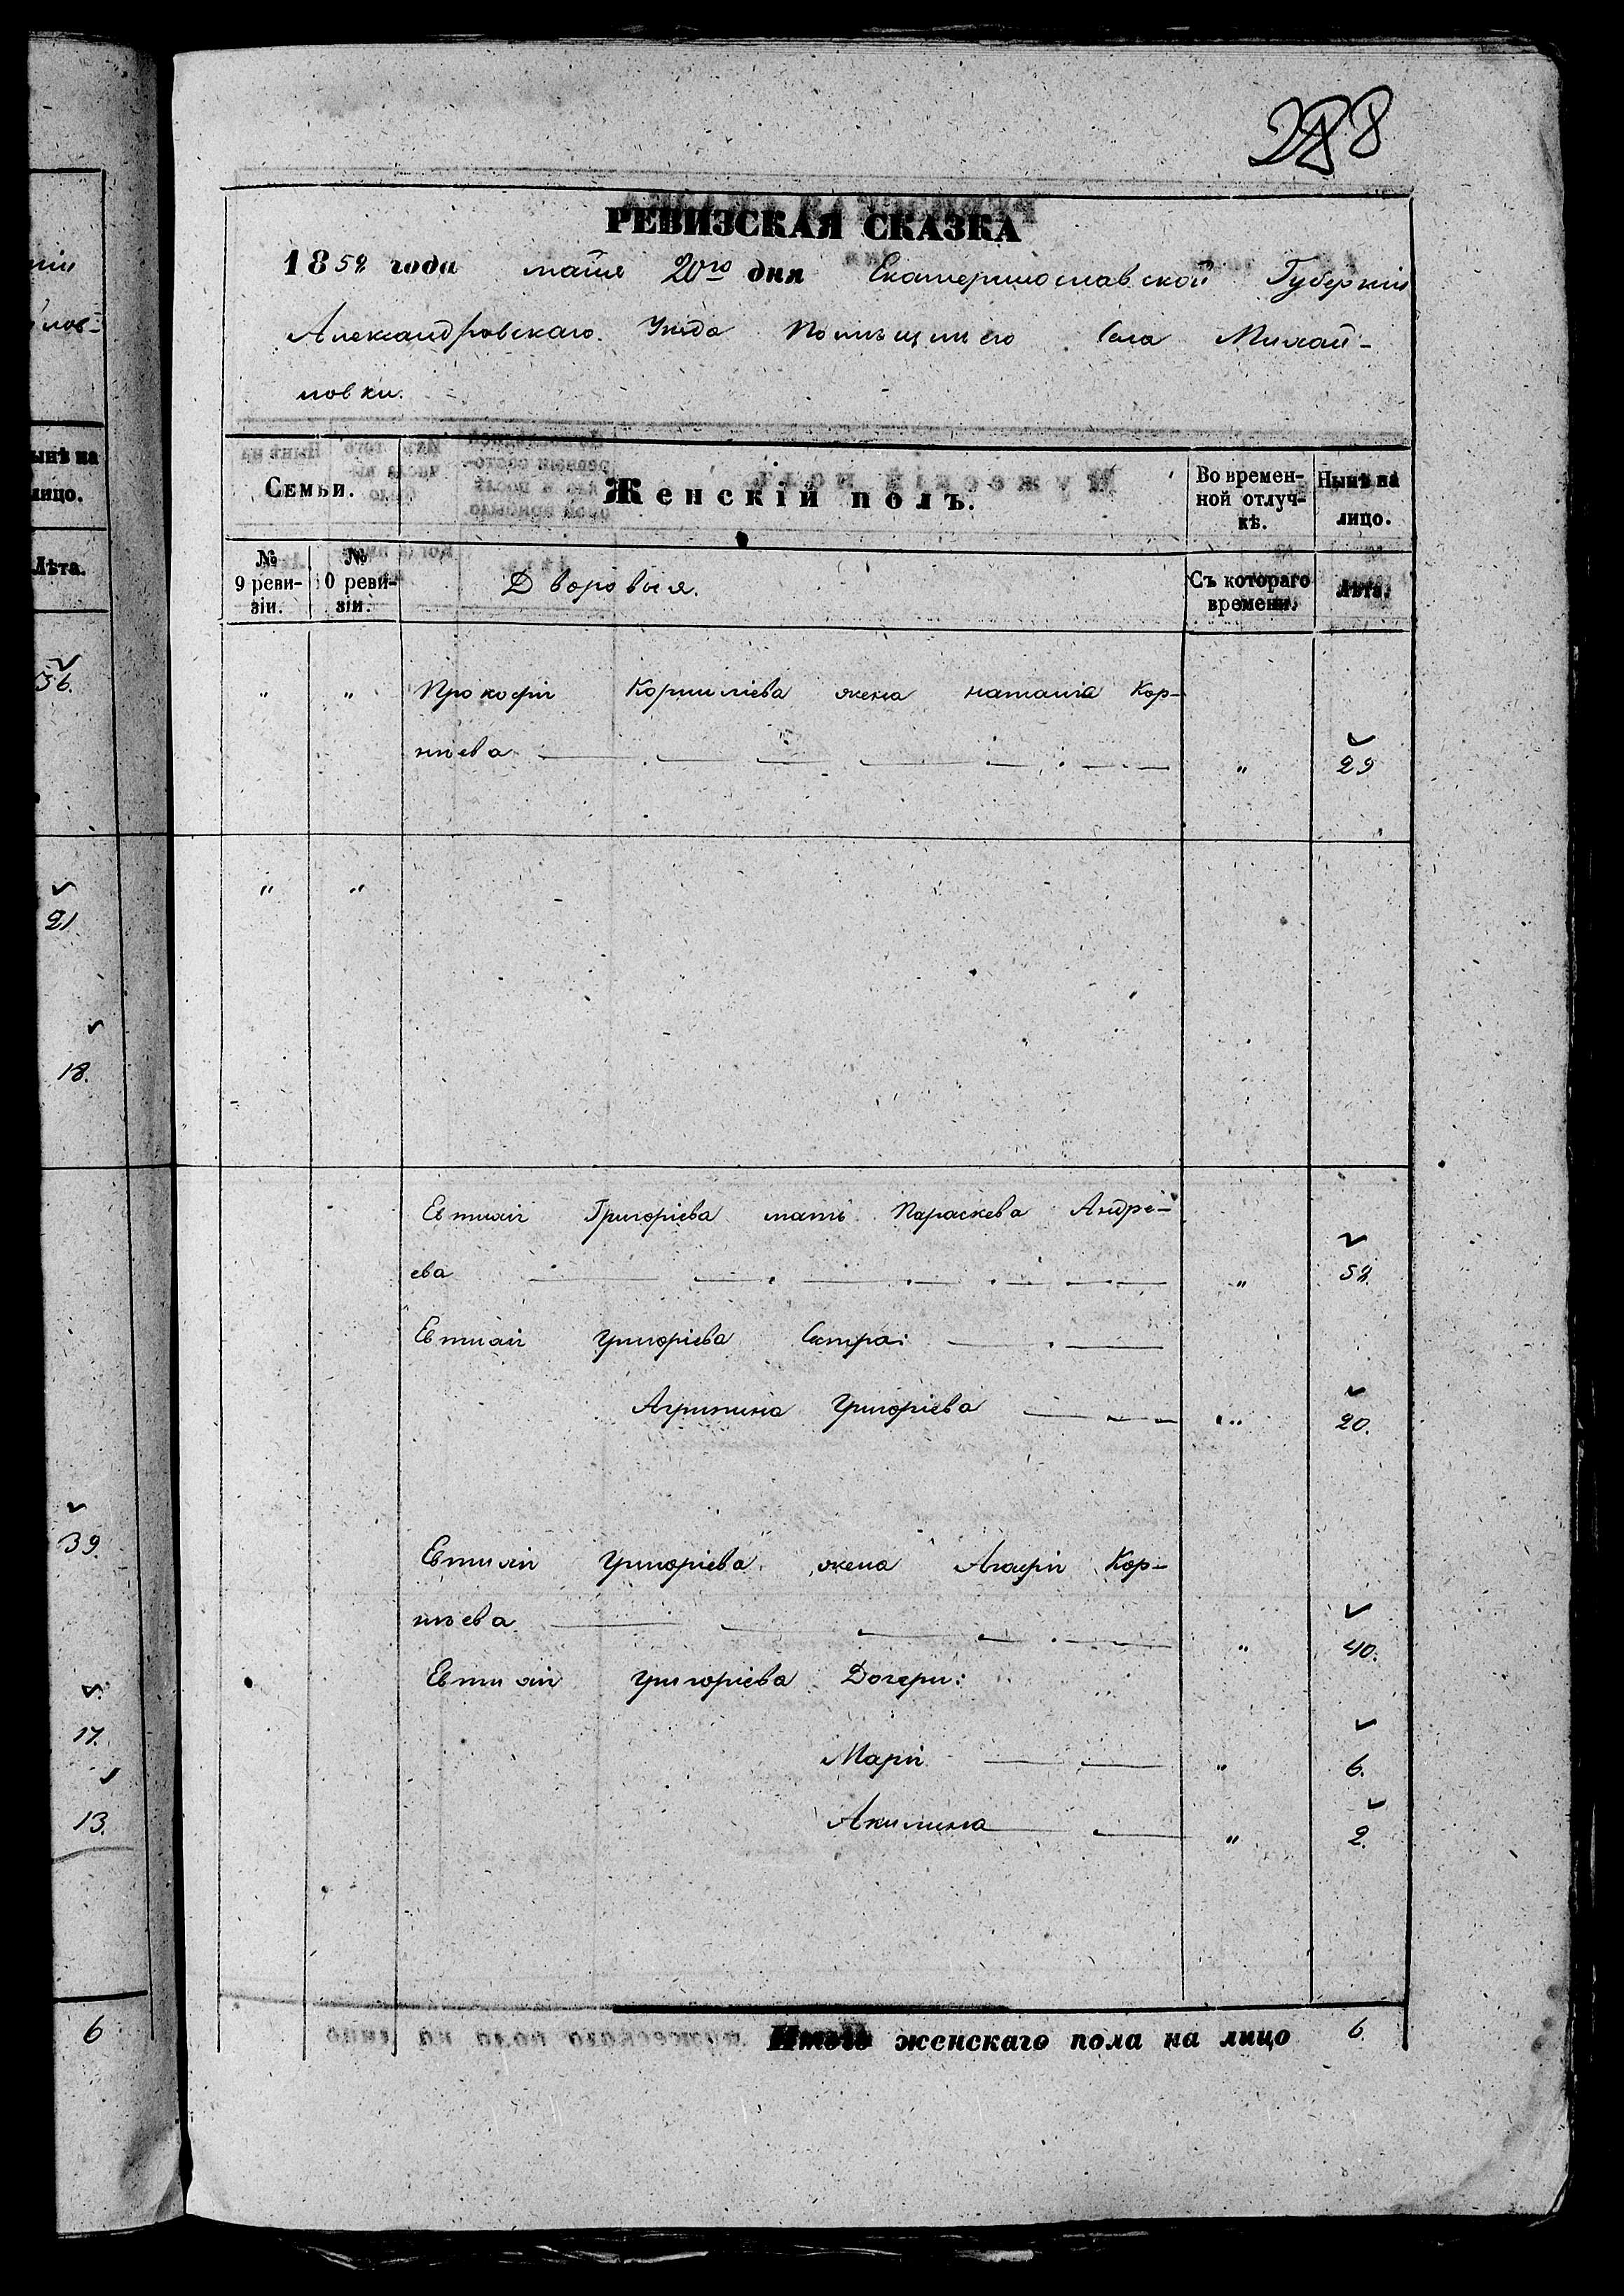 нiи
лов-
ынѣ на
лицо.
Лѣта.
36.
21
18.
39.
17.
13.
6
РЕВИЗСКАЯ СКАЗКА
1858 года маiя 20го дня Екатеринославской Губернiи
Александровскаго Уѣзда Помѣщичьего Села Михай-
ловки.
Семьи.
Женскiй полъ.
Во времен-
ной отлуч-
кѣ.
Нынѣ на
лицо.
№
9 реви-
зiи.
№
10 реви-
зiи.
Дворовыя.
Съ котораго
времени.
Лѣта.
" " Прокофiя Корнилiева жена наталiя Кор-
нiева " 29
" "
Евтихiя Григорiева мать Параскева Андре-
ева " 52
Евтихiя Григорiева Сестра:
Агрипина Григорiева " 20.
Евтихiя Григорiева жена Агафiя Кор-
нѣева " 40.
Евтихiя Григорiева Дочери:
Марiя " 6.
Акилина " 2.
Итого женскаго пола на лицо 6